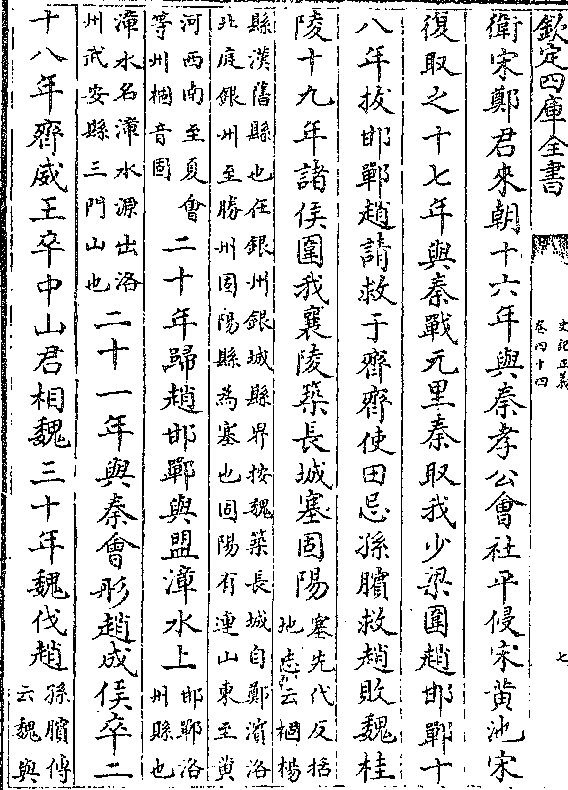 欽定四庫全書
史記正義
卷四十四
七
衛宋鄭君來朝十六年與秦孝公會社平侵宋黄池宋
復取之十七年與秦戰元里秦取我少梁圍趙邯鄲十
八年拔邯鄲趙請救于齊齊使田忌孫臏救趙敗魏桂
陵十九年諸侯圍我襄陵築長城塞固陽
塞先代反括
地志云棝楊
縣漢舊縣也在銀州銀城縣界按魏築長城自鄭濱洛
北庭銀州至勝州固陽縣為塞也固陽有連山東至黄
河西南至夏會
等州棝音固
二十年歸趙邯鄲與盟漳水上
邯鄲洛
州縣也
漳水名漳水源出洛
州武安縣三門山也
二十一年與秦會彤趙成侯卒二
十八年齊威王卒中山君相魏三十年魏伐趙
孫臏傳
云魏與